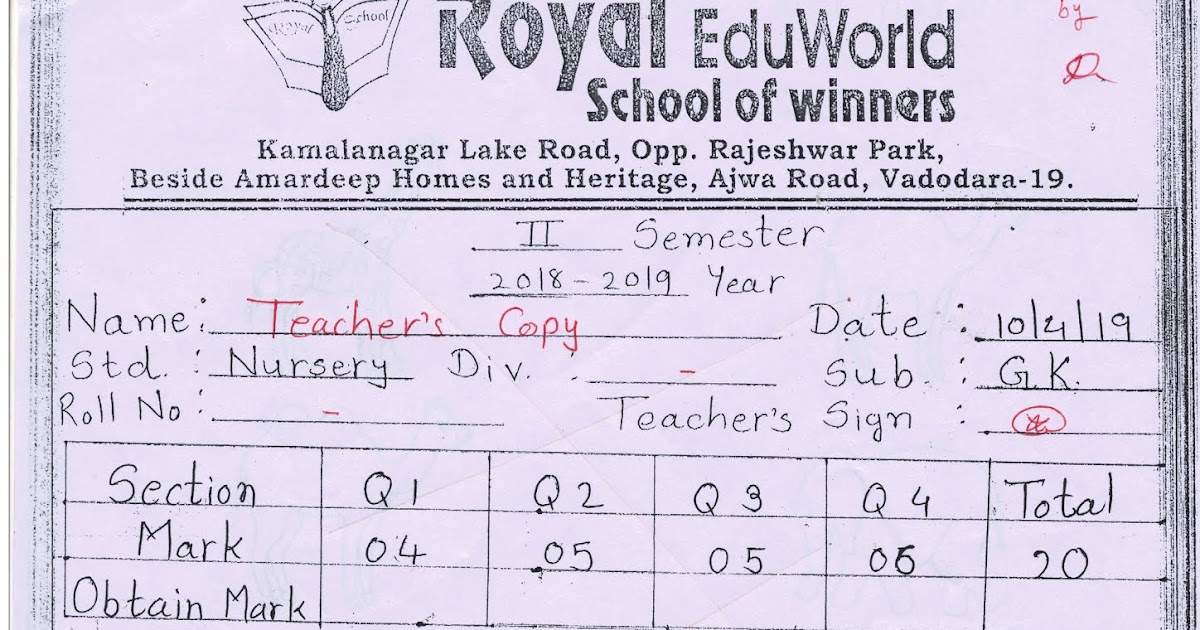 Royal School
by
Royal EduWorld
School of winners
Kamalanagar Lake Road, Opp. Rajeshwar Park,
Beside Amardeep Homes and Heritage, Ajwa Road, Vadodara-19.
II Semester
2018-2019 Year
Name: Teacher's Copy Date: 10/4/19
Std.: Nursery Div.: - Sub.: G.K.
Roll No: - Teacher's Sign:
Section Q1 Q2 Q3 Q4 Total
Mark 04 05 05 06 20
Obtain Mark